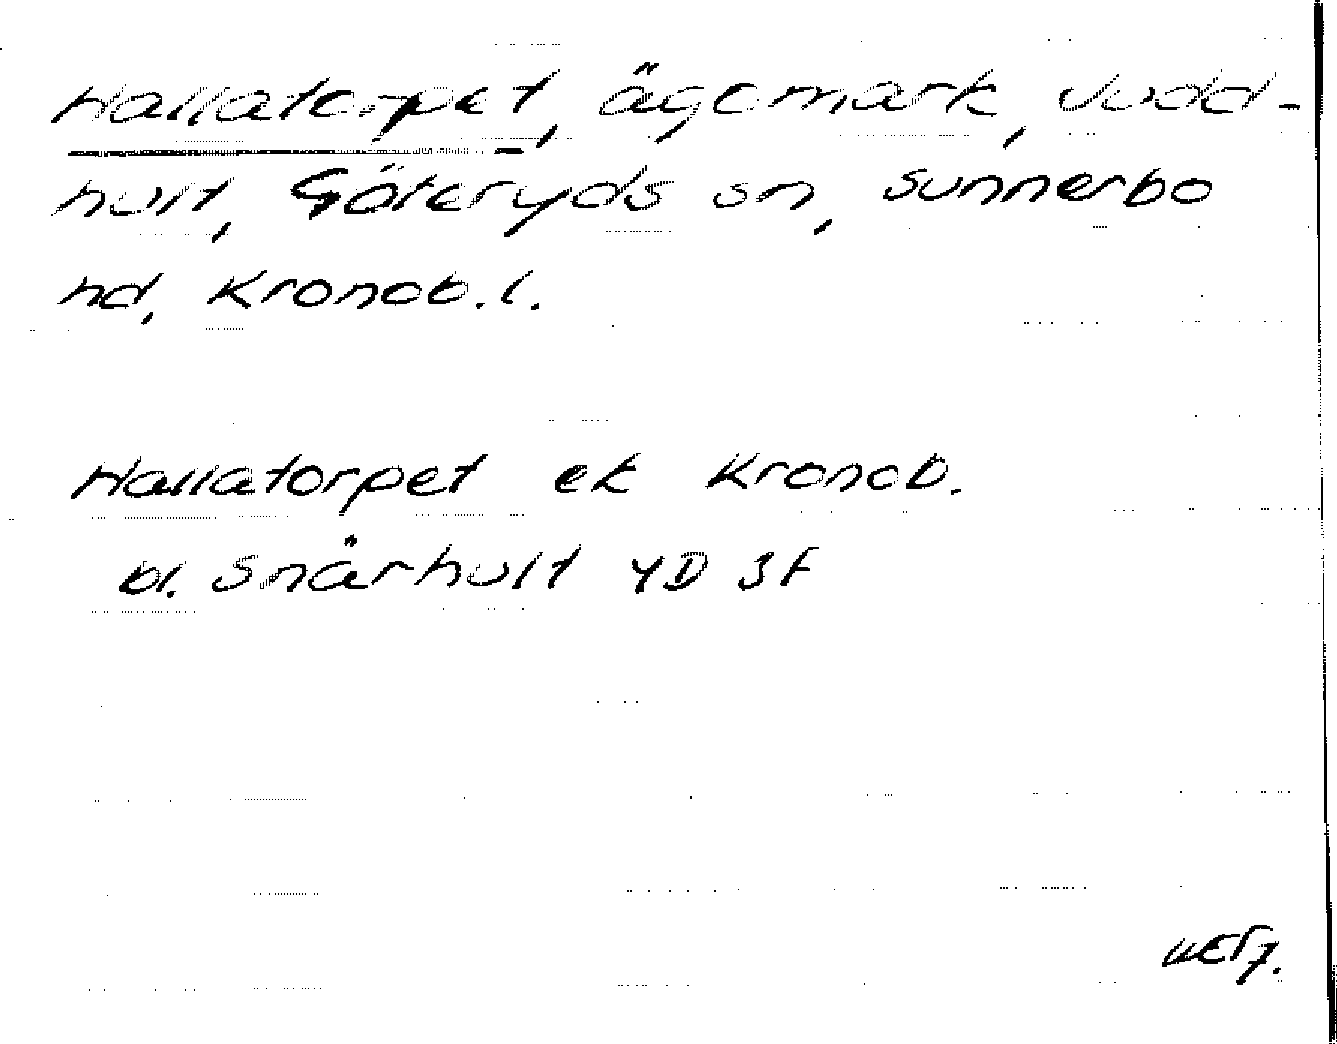 Hallatorpet, ägomark, Judd-
hult, Göteryds sn, Sunnerbo
hd, Kronob. l.
Hallatorpet ek Kronob.
bl. Snärhult 4D 3f